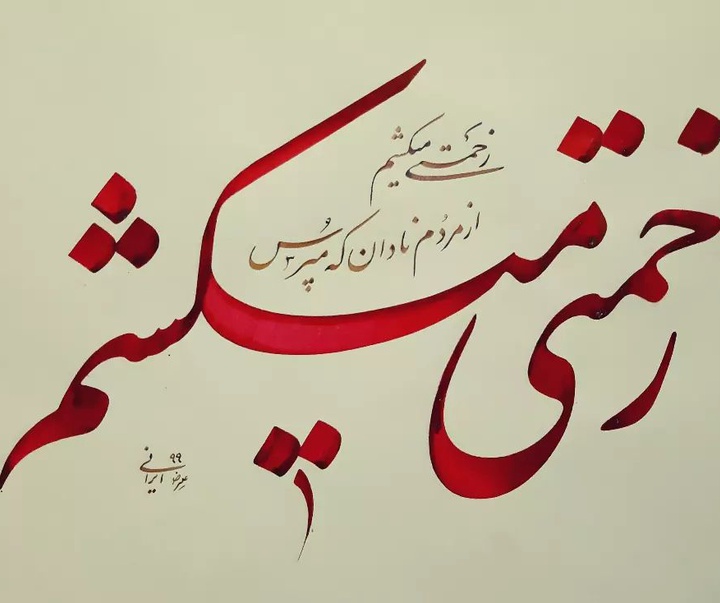 زحمتی میکشم
زحمتی میکشم
از مردُم نادان که مپرُس
۹۹
ایرانی